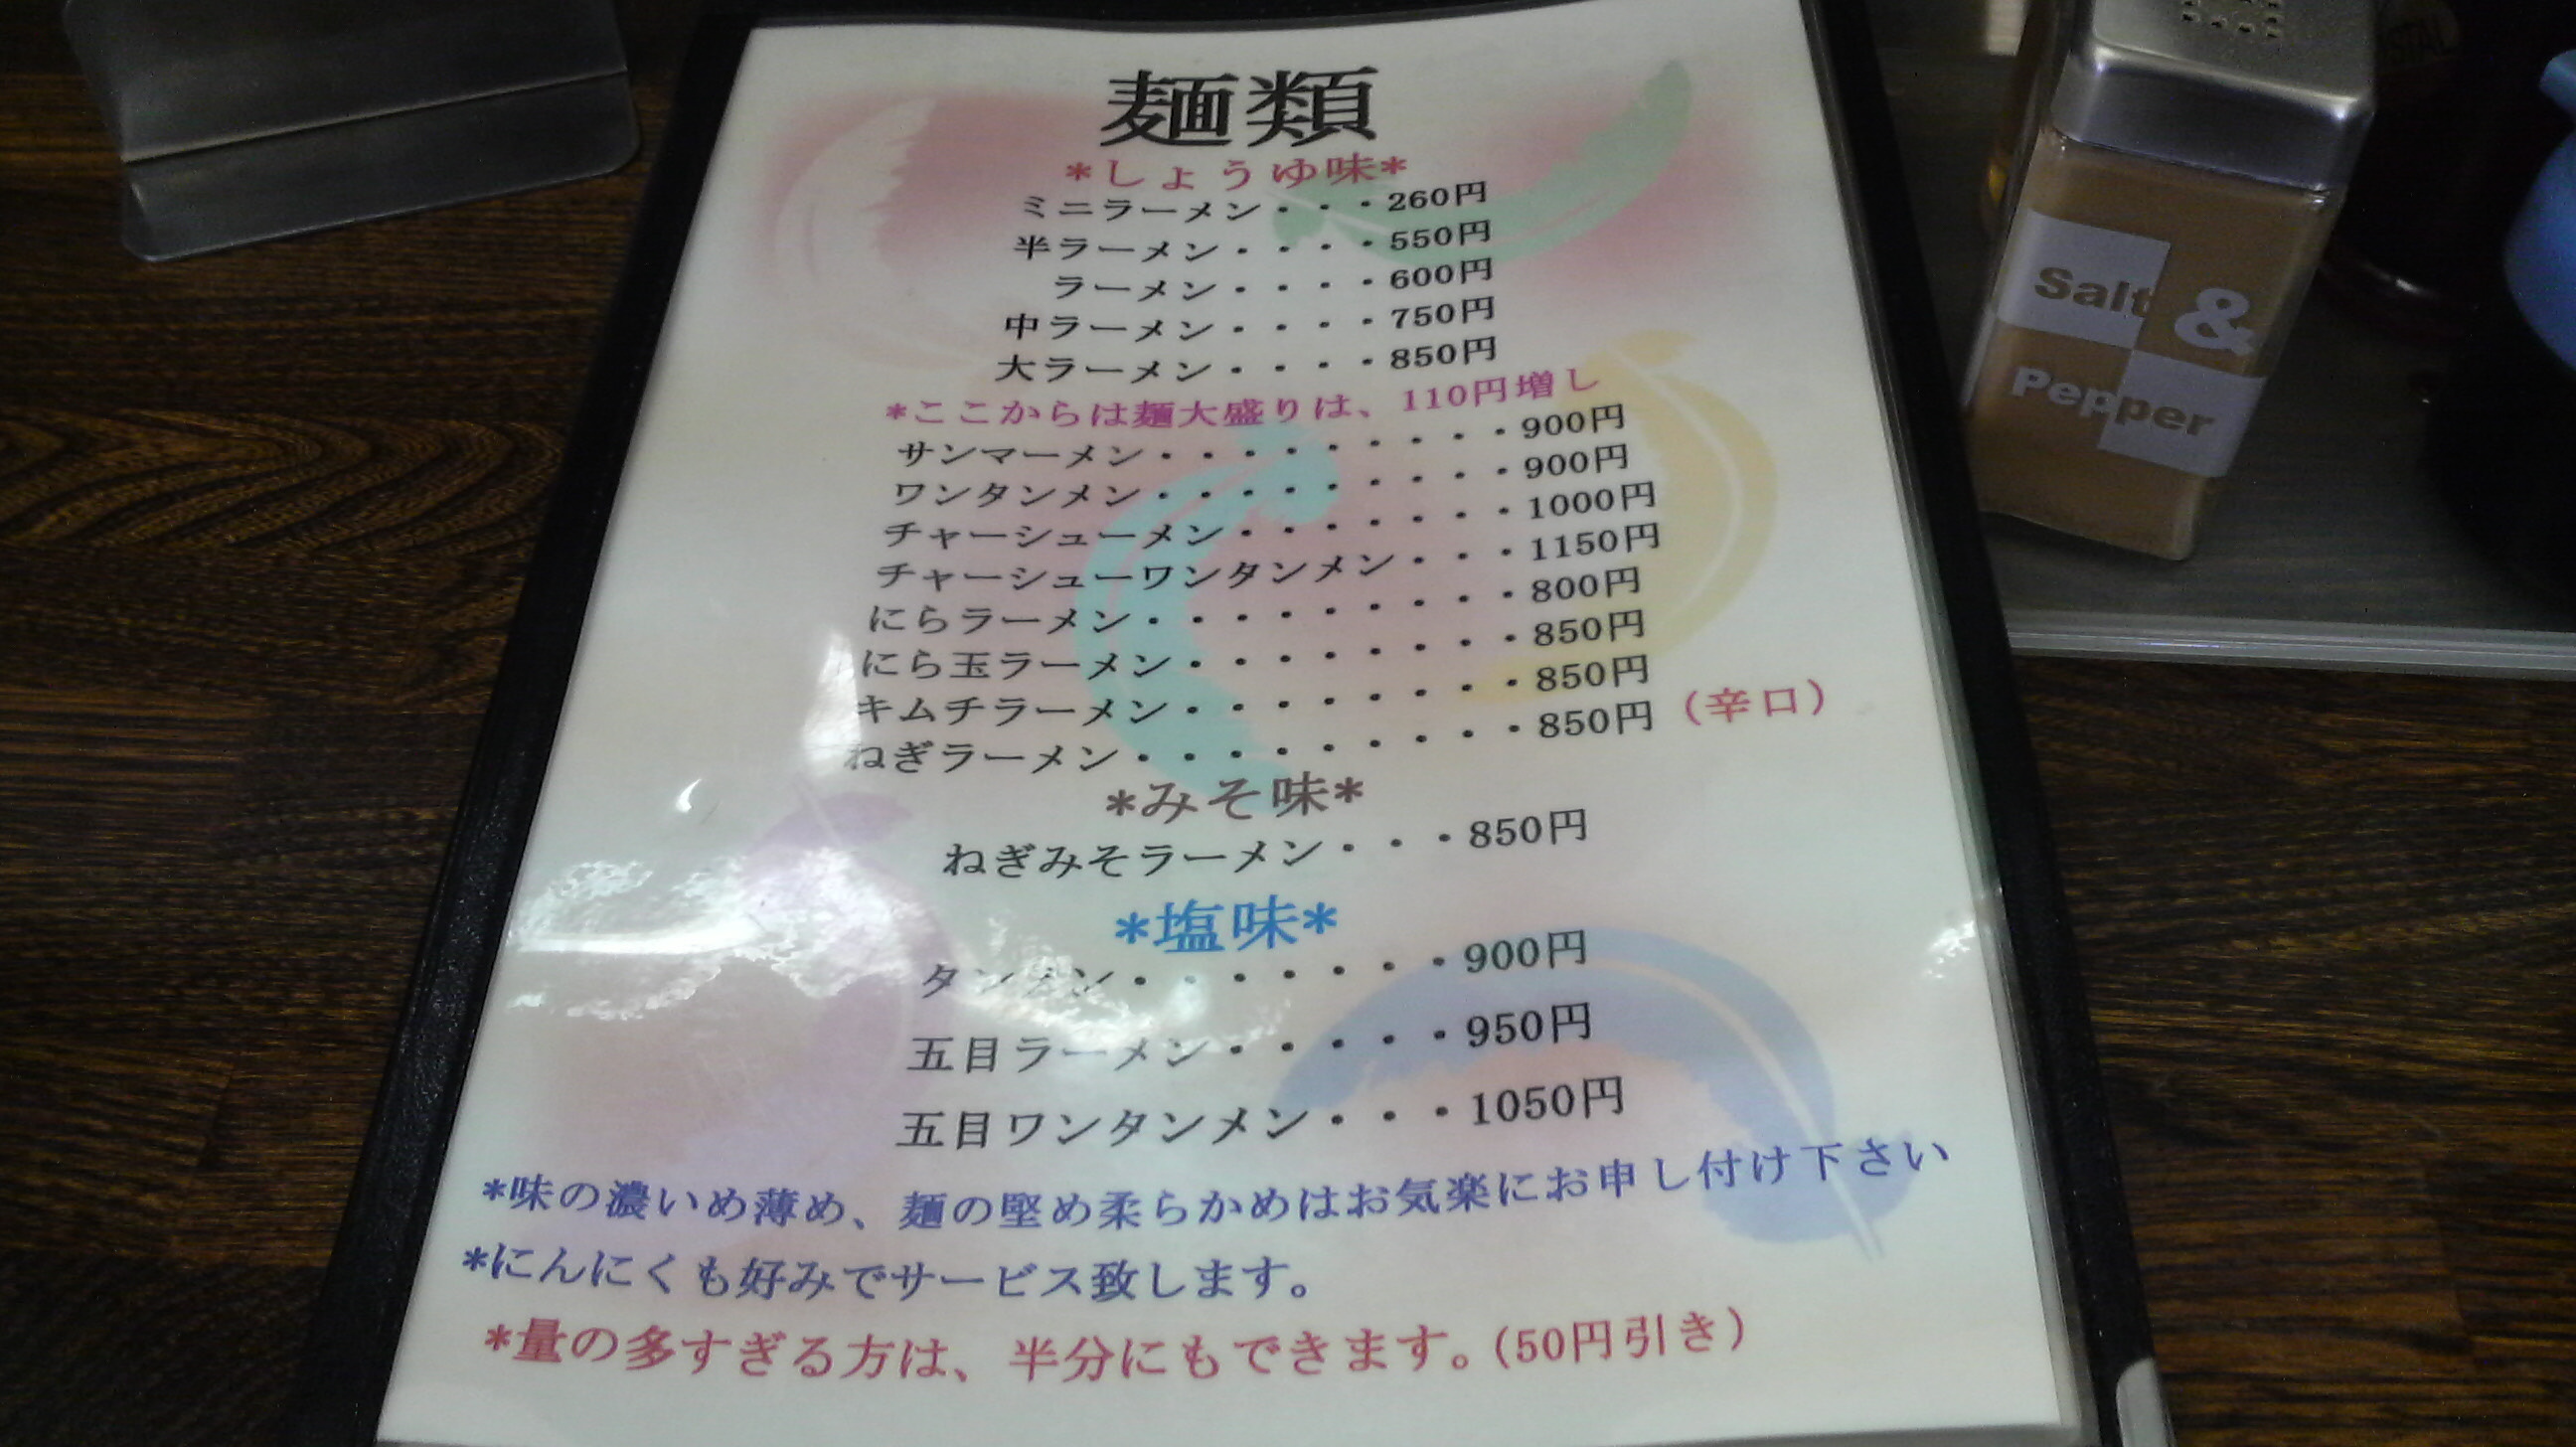 麺類
*しょうゆ味*
ミニラーメン・・・260円
半ラーメン・・・・550円
ラーメン・・・・600円
中ラーメン・・・・750円
大ラーメン・・・・850円
*ここからは麺大盛りは、110円増し
サンマーメン・・・・・・・・・900円
ワンタンメン・・・・・・・・・900円
チャーシューメン・・・・・・・1000円
チャーシューワンタンメン・・・1150円
にらラーメン・・・・・・・・・800円
にら玉ラーメン・・・・・・・・850円
キムチラーメン・・・・・・・・850円
ねぎラーメン・・・・・・・・・850円（辛口）
*みそ味*
ねぎみそラーメン・・・850円
*塩味*
タンメン・・・・・・・900円
五目ラーメン・・・・・950円
五目ワンタンメン・・・1050円
*味の濃いめ薄め、麺の堅め柔らかめはお気楽にお申し付け下さい
*にんにくも好みでサービス致します。
*量の多すぎる方は、半分にもできます。(50円引き)
Salt &
Pepper